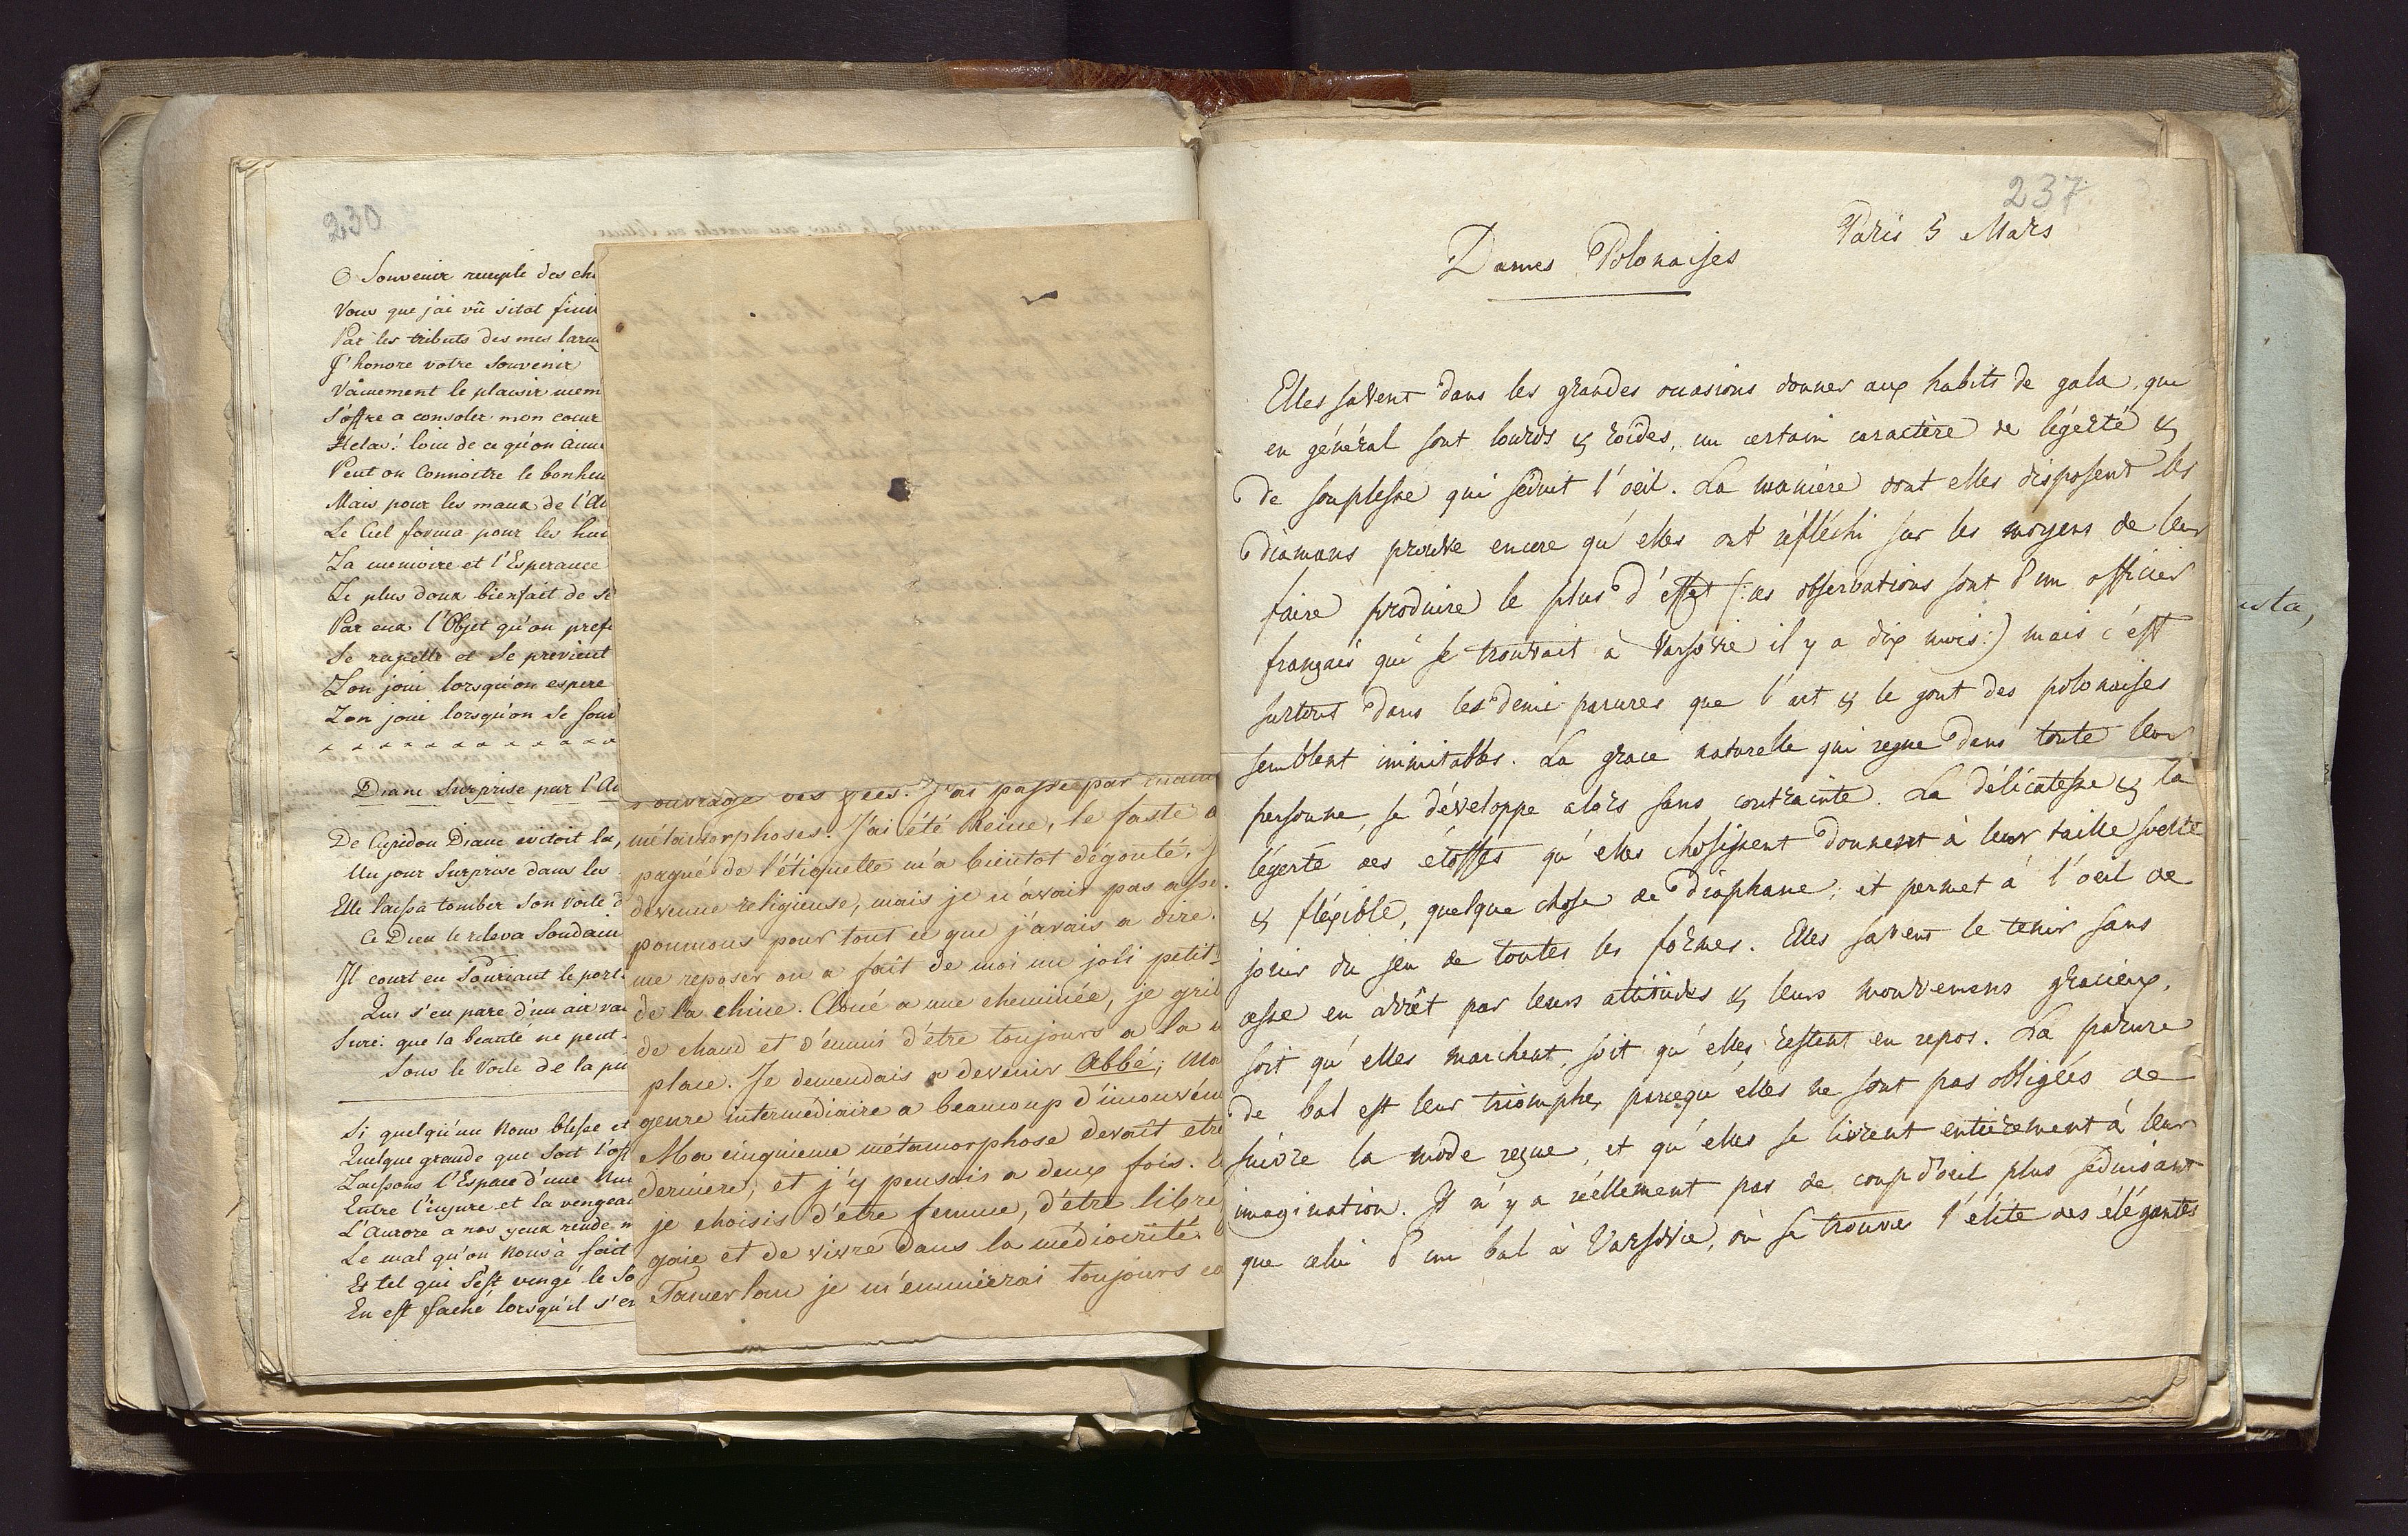 230
O Souvenir remple des ch
Vous que j'ai vû sitot finir
Par les tributs des mes larm
J'honore votre Souvenir
Vainement le plaisir mem
S'offre a consoler mon coeur
Helas! loin de ce qu'on aim
Peut on Connoitre le bonheu
Mais pour les maux de l'A
Le Ciel forma pour les hu
La memoire et l'Esperance
Le plus doux bienfait de s
Par eux l'Objet qu'on prefe
Se rapelle et Se previent
L'on joui lorsqu'on espere
L'on joui lorsqu'on se souv
Diane Surprise par l'A
De Cupidon Diane evitoit la
Un jour Surprise dans les
Elle laissa tomber Son voile d
Ce Dieu le releva Soudain
Il court en Souriant le port
Qui s'en pare d'un air va
Sure: que la beauté ne peut
Sous le Voile de la pu
Si quelqu'un Nous blesse et
Quelque grande que Soit l'off
Laissons l'Espace d'une Nui
Entre l'injure et la vengea
L'Aurore a nos yeux rende m
Le mal qu'on Nous à fait
Et tel qui S'est vengé le So
En est faché lorsqu'il s'e
ouvrage vos fées. J'ai passée par
métamorphoses. J'ai été Reine, le faste a
pagné de l'étiquelle m'a bientot dégouté. J
devenue religieuse, mais je n'avais pas asse
poumons pour tout ce que j'avais a dire.
me reposer on a fait de moi un joli petit
de la chine. Cloué a une cheminée, je gril
de chaud et d'ennui d'être toujours a la
place. Je demendais a devenir Abbé; Ma
genre intermédiaire a beaucoup d'inconvén
Ma cinquieme métamorphose devait etre
dernière, et j'y pensais a deux fois.
je choisis d'être femme, d'être libre
gaie et de vivre dans la médiocrité.
Tamerlan je m'ennuierai toujours
237
Paris 5 Mars
Dames Polonaises
Elles savent dans les grandes occasions donner aux habits de gala, qui
en général sont lourds & roides, un certain caractère de légerté &
de souplesse qui séduit l'oeil. La manière dont elles disposent les
diamans prouve encore qu'elles ont réfléchi sur les moyens de leur
faire produire le plus d'effet (: ces observations sont d'un officier
français qui se trouvait à Varsovie il y a dix mois:) mais c'est
surtout dans les demi-parures que l'art & le gout des polonaises
semblent inimitables. La grace naturelle qui regne dans toute leur
personne, se développe alors sans contrainte. La délicatesse & la
légerté des étoffes qu'elles choisissent donnent à leur taille svelte
& fléxible, quelque chose de diaphane; et permet à l'oeil de
jouir du jeu de toutes les formes. Elles savent le tenir sans
cesse en arrêt par leurs attitudes & leurs mouvemens gracieux,
soit qu'elles marchent, soit qu'elles restent en repos. La parure
de bal est leur triomphe, parcequ'elles ne sont pas obligées de
suivre la mode reçue, et qu'elles se livrent entièrement à leur
imagination. Il n'y a réellement pas de coup d'oeil plus séduisant
que celui d'un bal à Varsovie, où se trouve l'élite des élégantes
usta,